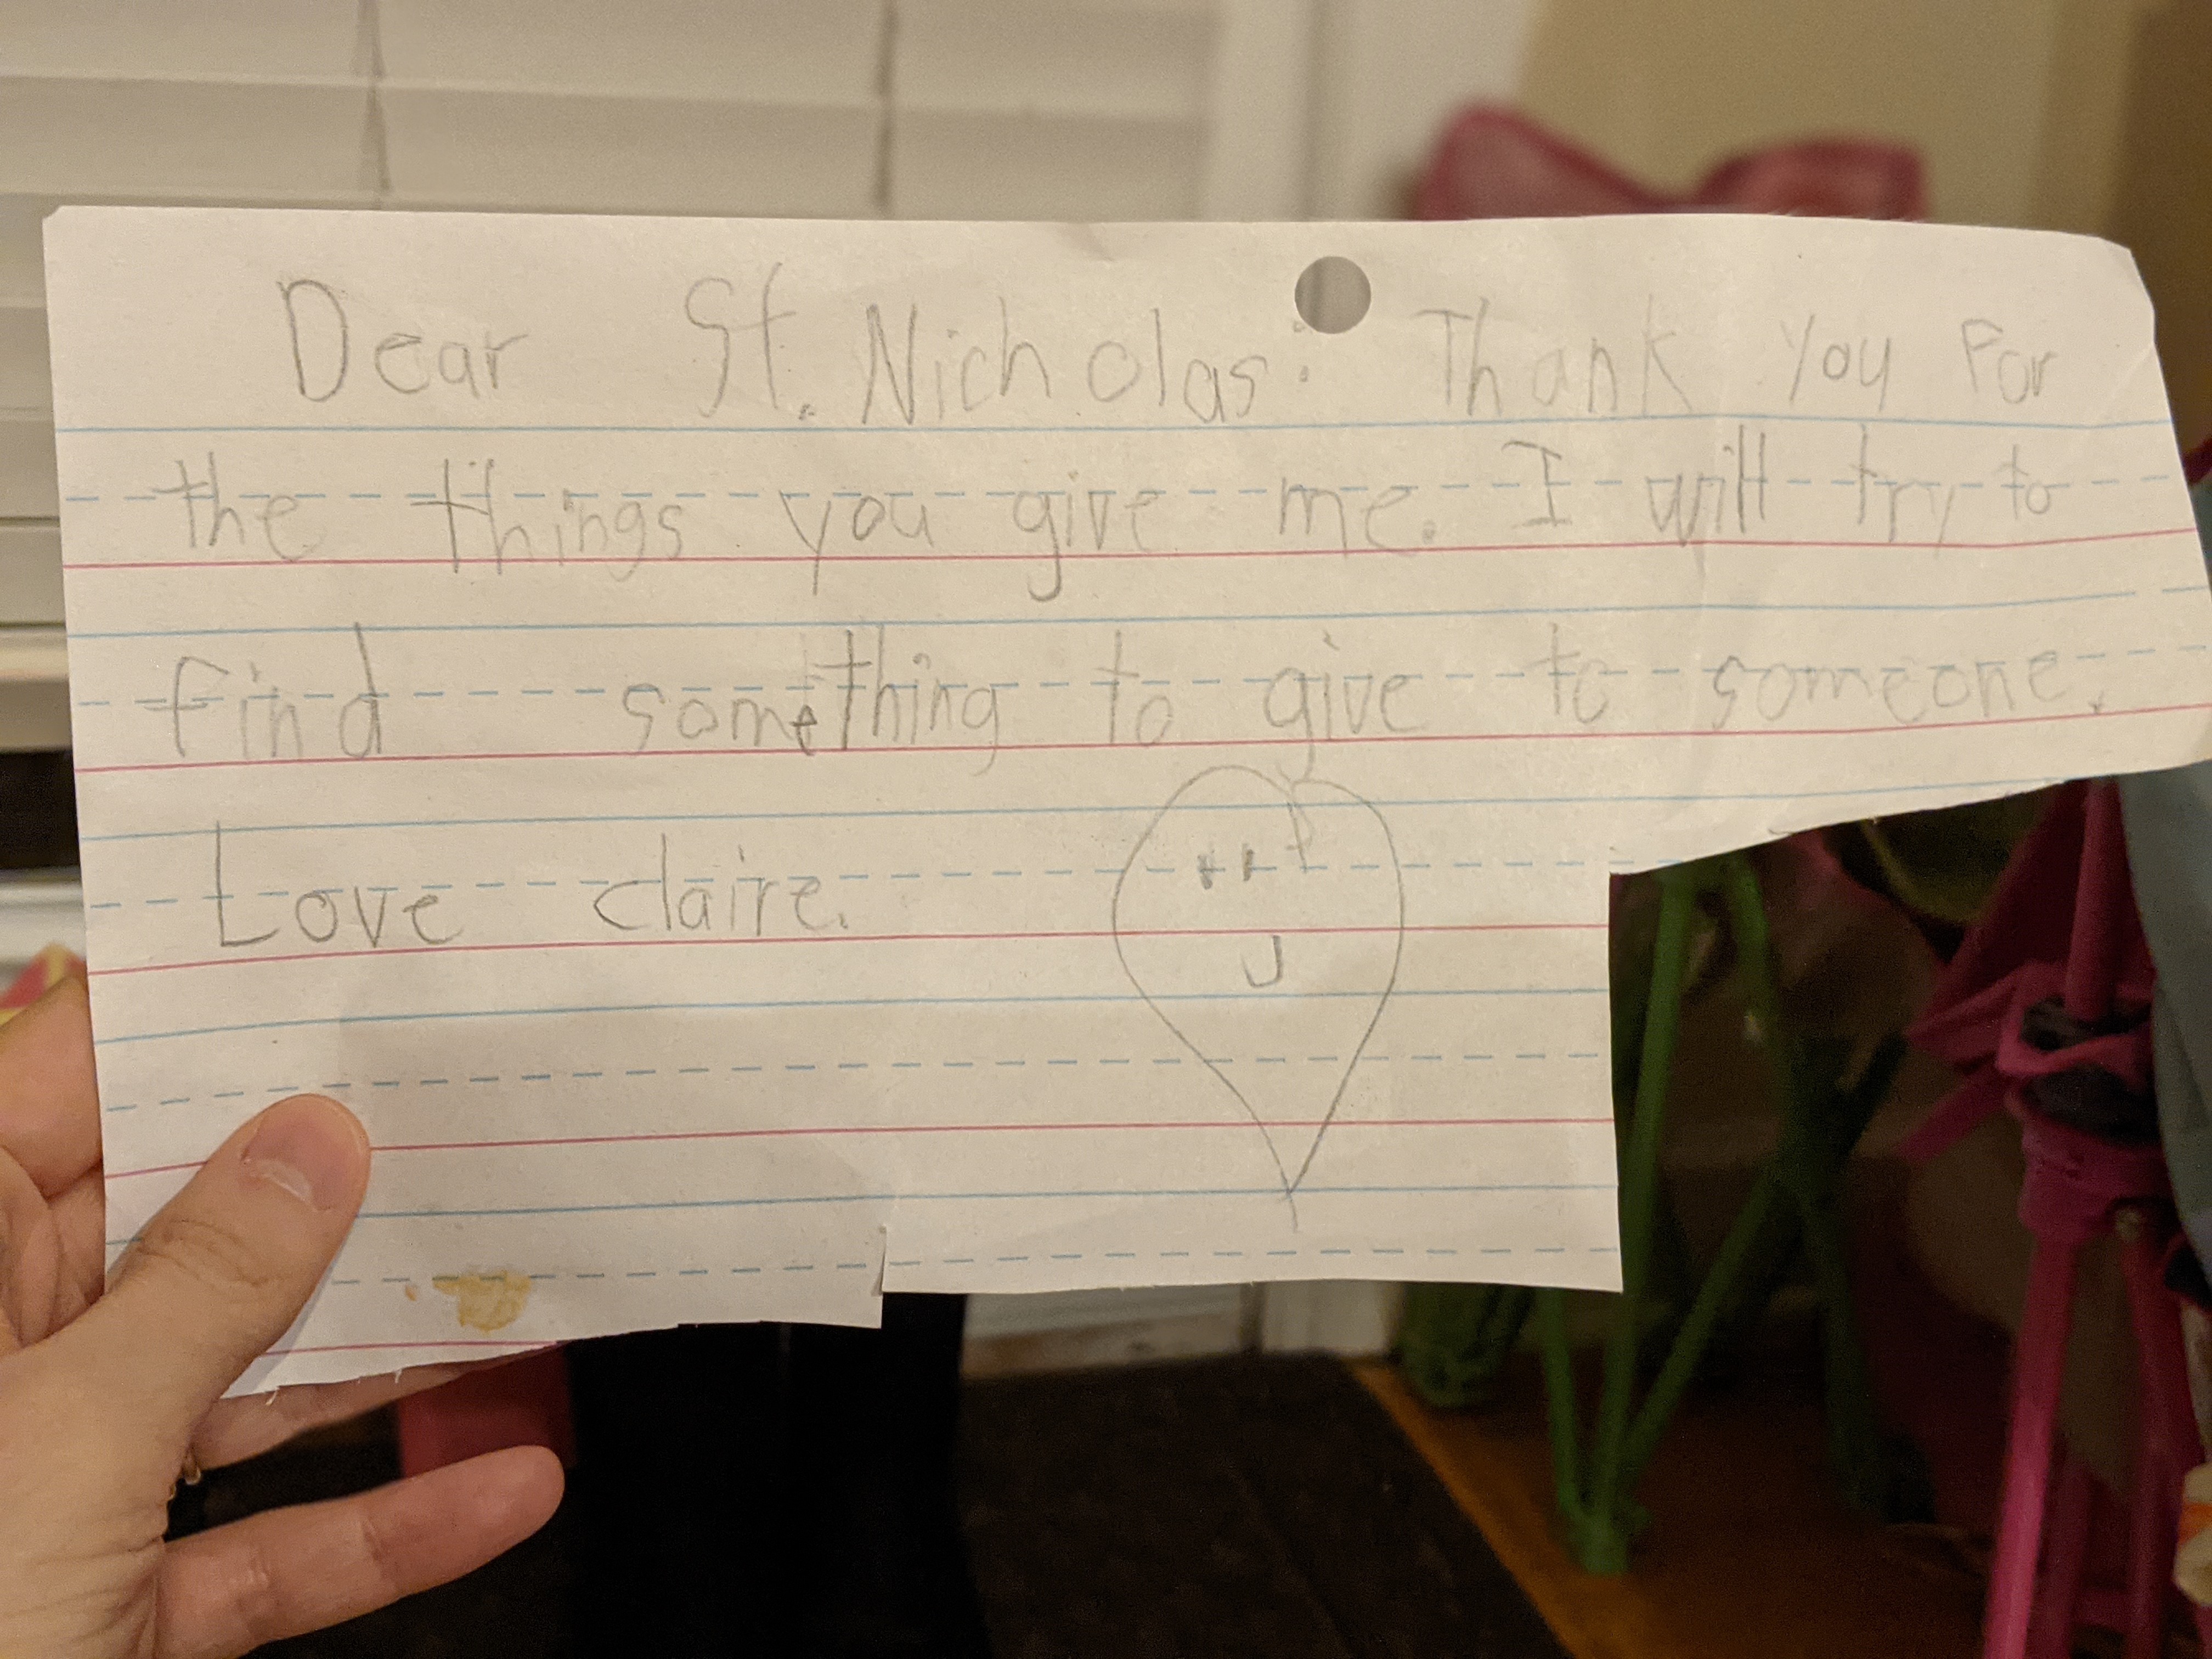 Dear St. Nicholas: Thank you For
the things you give me. I will try to
find something to give to someone.
Love claire.